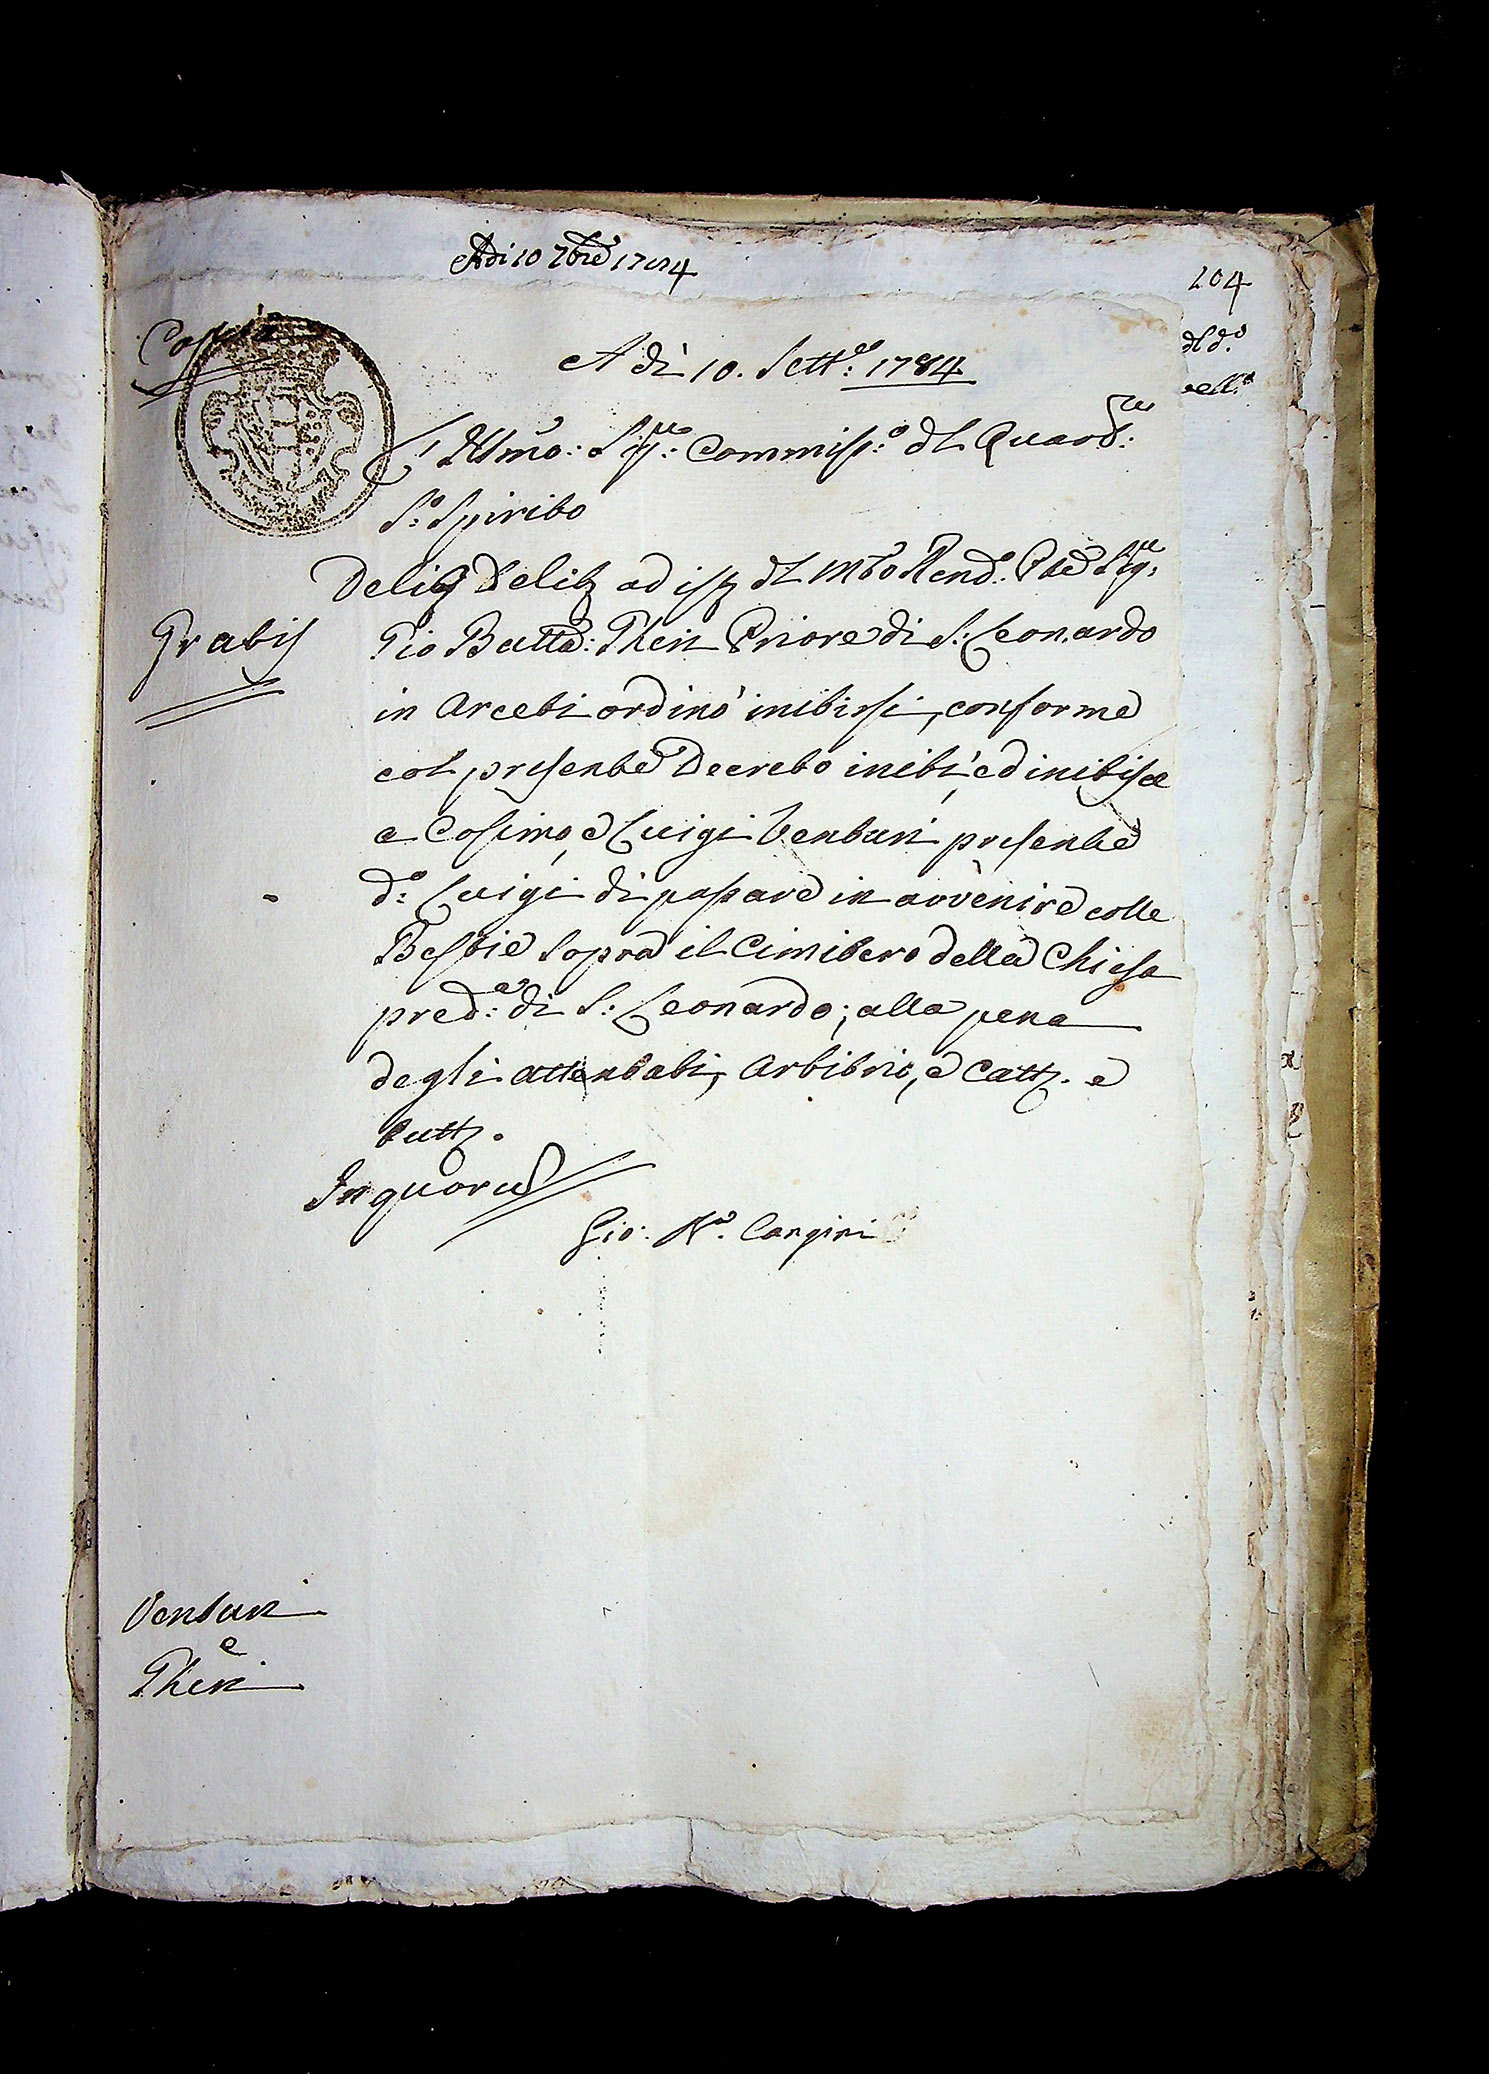 Adi 10 7bre 1784
104
Coppia
dl d:o
vell:o
A dì 10. Sett:e 1784
L'Illmo: Sig:re Commiss:o dl Quart:re
S:o Spirito
Delib Delib ad ist dl Mto Rend: Pre Sig:re
Gratis
Gio Batta: Theri Priore di S: Leonardo
in Arcetri ordinò inibirsi, conforme
col presente Decreto inibì, ed inibisce
a Cosimo, e Luigi Venturi presente
d:o Luigi di passare in avvenire colle
Bestie sopra il Cimitero della Chiesa
pred:a di S: Leonardo; alla pena
degli attentati, Arbitrio, e Catt. e
tutt.
In quorum
Gio: N:o Cangini
Venturi
e
Theri